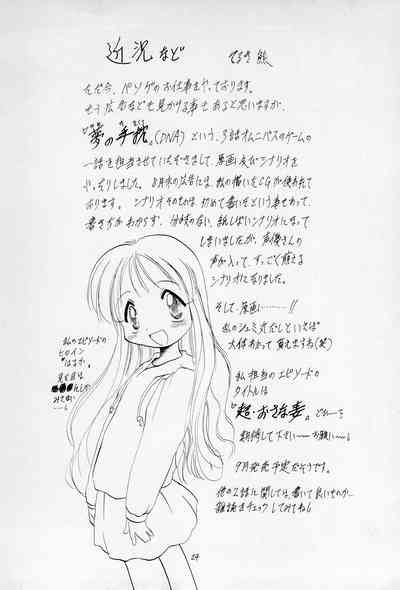 近況など
てるき熊
ただ今、パソゲのお仕事をやっております。
もう広告なども見かける事もあると思いますが、
"夢の手枕"(DNA)という、3話オムニバスのゲームの
一話を担当させていただきまして、原画及びシナリオを
やったりしました。8月末の広告には、私の描いたCGが使われて
おります。シナリオそのものは、初めて書いたという事もあって、
書き方がわからず、分岐のない、拙いシナリオになって
しまいましたが、声優さんの
声が入って、すっごく萌える
シナリオになりました。
そして、原画に……!!
私のシュミ丸だしといえば
大体わかって貰えますね(笑)
私のエピソードの
ヒロイン
"はるか"。
見た目は
私担当のエピソードの
タイトルは
"超・おさな妻"。でぇーす
期待して下さい〜お願い〜。
9月発売予定だそうです。
他の2話に関しては、書いて良いものか…
雑誌をチェックしてみてね。
24